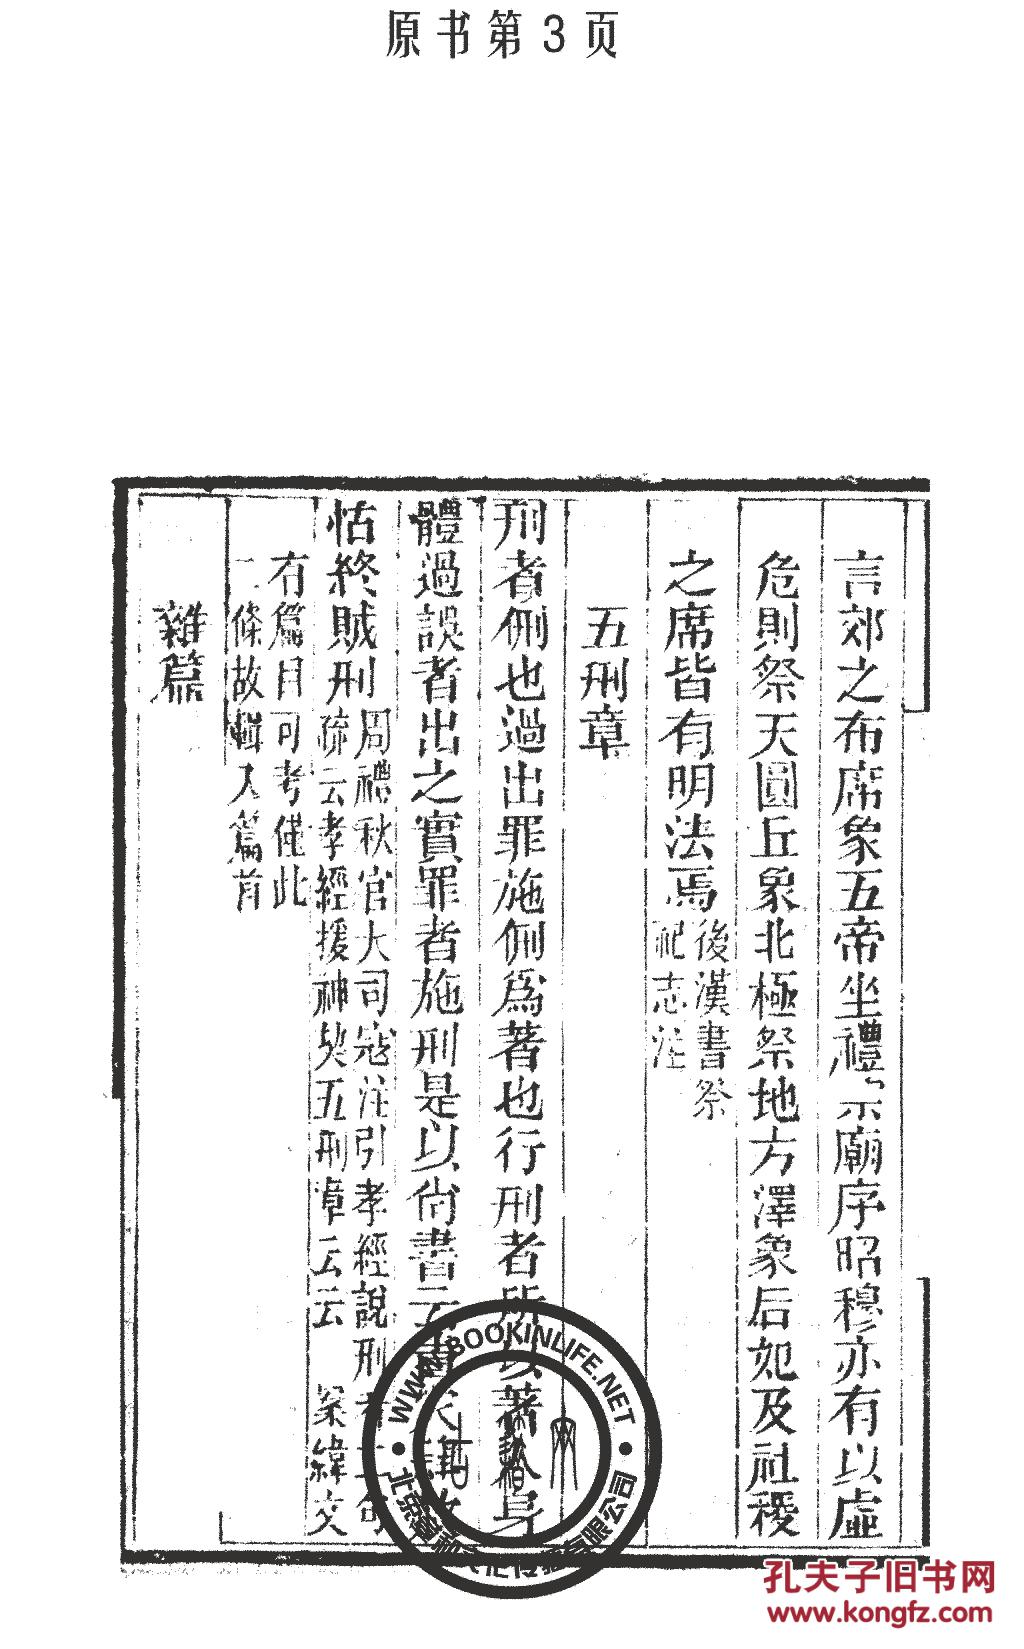 原书第3页
言郊之布席象五帝坐禮示廟序昭穆亦有以虛
危則祭天圓丘象北極祭地方澤象后妃及社稷
之席皆有明法焉
後漢書祭
祀志注
五刑章
刑者侀也過出罪施侀爲著也行刑者所以著人身
體過誤者出之實罪者施刑是以尚書云
怙終賊刑
周禮秋官大司寇注引孝經說刑者
疏云孝經援神契五刑章云云 案緯文
有篇目可考僅此
二條故輯入篇首
雜篇
WWW.BOOKINLIFE.NET
孔夫子旧书网
www.kongfz.com